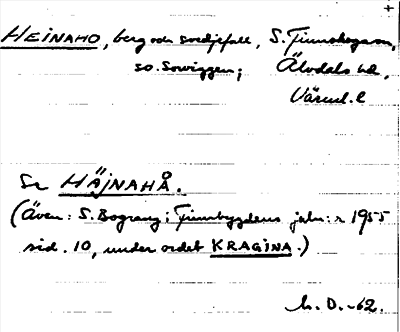 HEINAHO, berg och svedjefall, S. Finnskogarna,
so. Sorviggen; Älvdals hd,
Värml. l
Se HÄJNAHÅ.
(Även: S. Bograng i Finnbygdens julnr 1955
sid. 10, under ordet KRAGINA.)
h. D. -62.